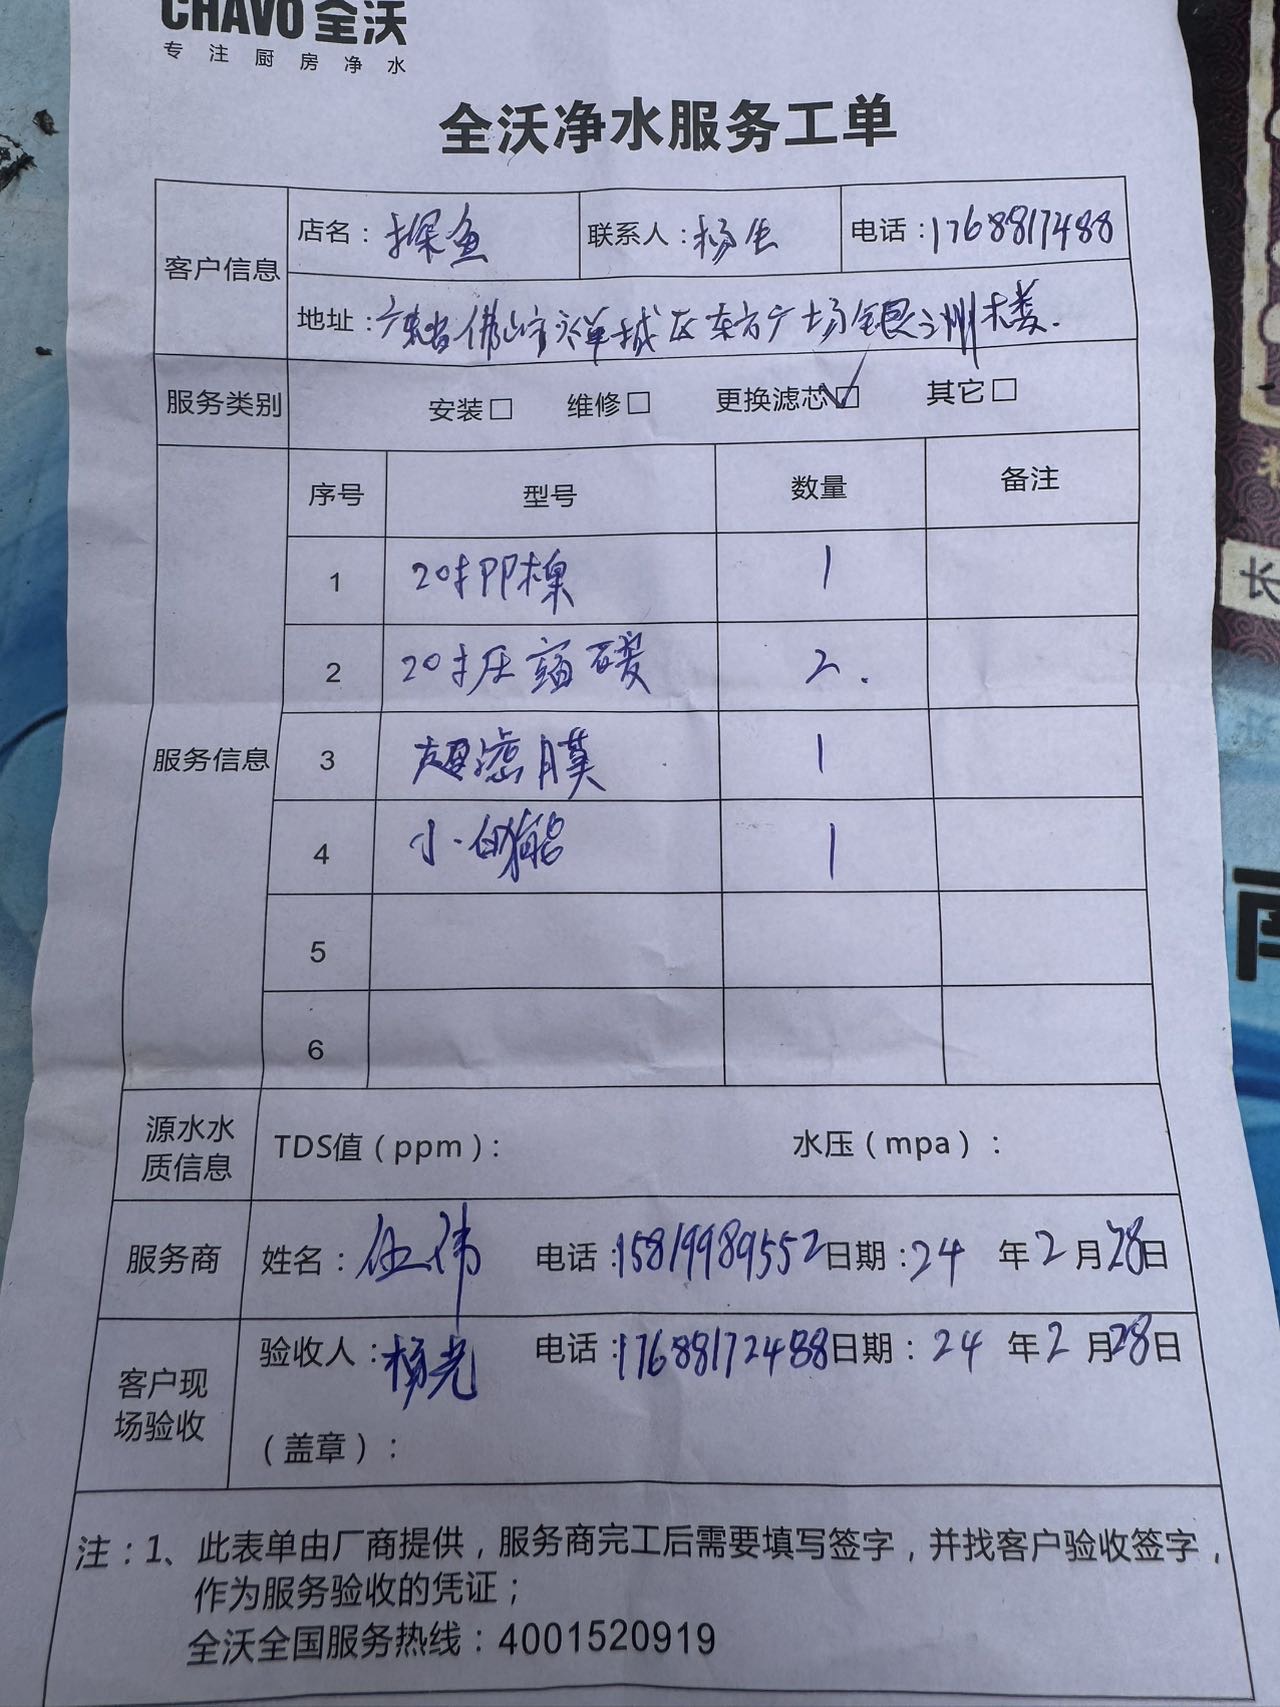 CHAVO 全沃
专注厨房净水
全沃净水服务工单
客户信息
店名：探鱼 联系人：杨生 电话：17688172488
地址：广东省佛山市禅城区东方广场银洲楼.
服务类别 安装□ 维修□ 更换滤芯☑ 其它□
服务信息
序号 型号 数量 备注
1 20寸PP棉 1
2 20寸压缩碳 2.
3 超滤膜 1
4 小白熊 1
5
6
源水水质信息 TDS值（ppm）： 水压（mpa）：
服务商 姓名：伍伟 电话：15819989552 日期：24 年 2 月 28 日
客户现场验收 验收人：杨光 电话：17688172488 日期：24 年 2 月 28 日
（盖章）：
注：1、此表单由厂商提供，服务商完工后需要填写签字，并找客户验收签字，
作为服务验收的凭证；
全沃全国服务热线：4001520919
长